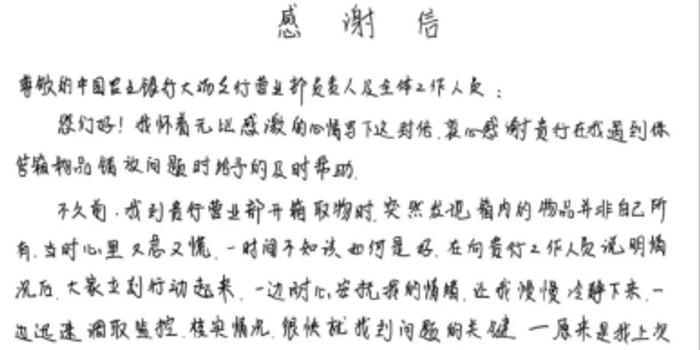 感谢信
尊敬的中国民生银行大而支行营业部负责人及全体工作人员：
您们好！我怀着无比感激的心情写下这封信，衷心感谢贵行在我遇到保
管箱物品错放问题时给予的及时帮助。
不久前，我到贵行营业部开箱取物时，突然发现箱内的物品并非自己所
有，当时心里又急又慌，一时间不知该如何是好，在向贵行工作人员说明情
况后，大家立刻行动起来，一边耐心安抚我的情绪，让我慢慢冷静下来，一
边迅速调取监控，核实情况，很快就找到问题的关键—原来是我上次